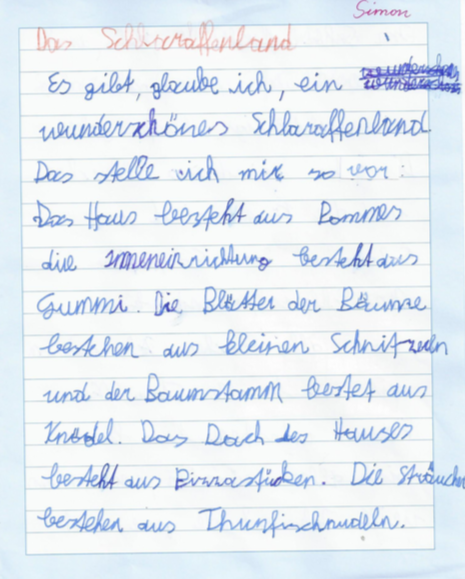 Simon
Das Schlaraffenland
Es gibt, glaube ich, ein
wunderschönes Schlaraffenland
Das stelle ich mir so vor:
Das Haus besteht aus Pommes
die Inneneinrichtung besteht aus
Gummi. Die Blätter der Bäume
bestehen aus kleinen Schnitzeln
und der Baumstamm bestet aus
Knödel. Das Dach des Hauses
besteht aus Pizzastücken. Die Sträucher
bestehen aus Thunfischnudeln.